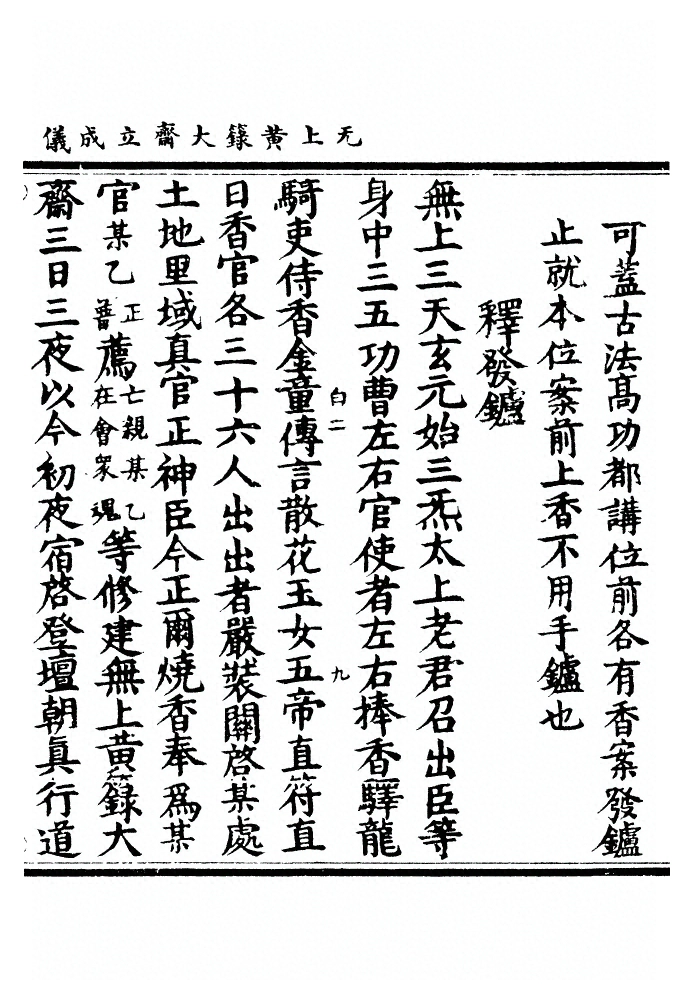 无上黃籙大齋立成儀
可蓋古法高功都講位前各有香案發鑪
止就本位案前上香不用手鑪也
釋發鑪
無上三天玄元始三炁太上老君召出臣等
身中三五功曹左右官使者左右捧香驛龍
騎吏侍香金童傳言散花玉女五帝直符直
白二
九
日香官各三十六人出出者嚴裝關啓某處
土地里域真官正神臣今正爾燒香奉爲某
官某乙正普薦亡親某乙在會衆魂等修建無上黃籙大
齋三日三夜以今初夜宿啓登壇朝真行道